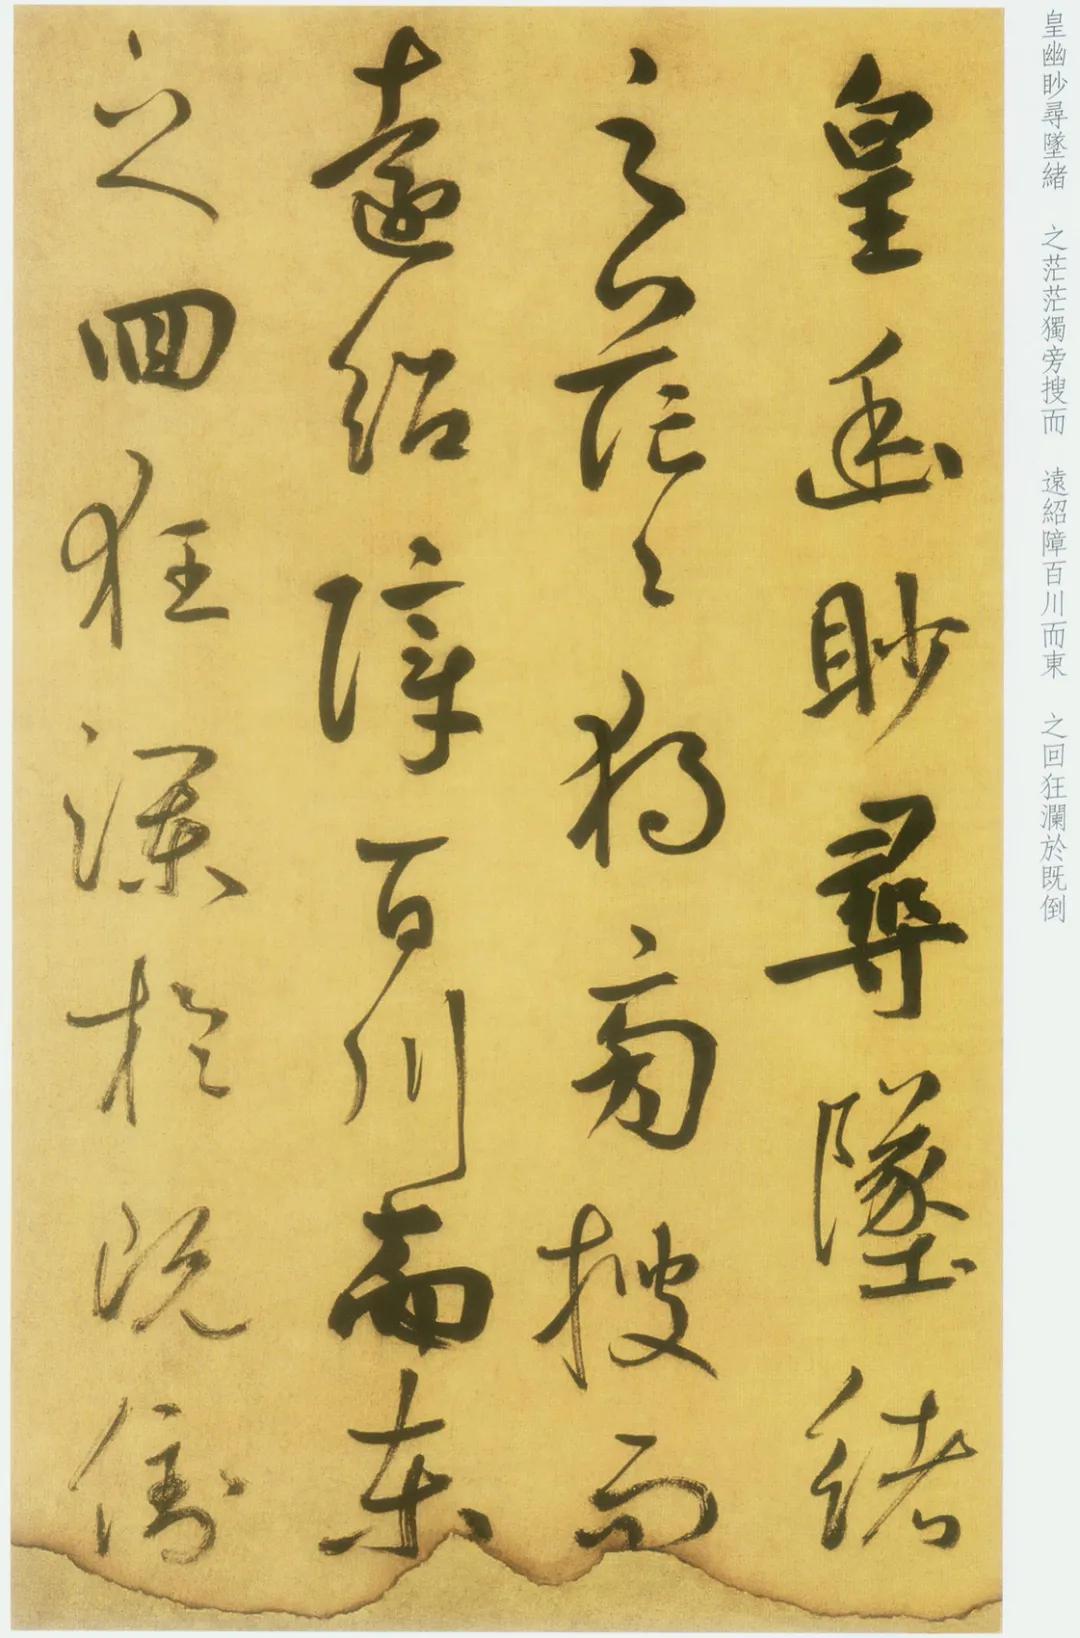 皇幽眇尋墜緒
之茫茫獨旁搜而
遠紹障百川而東
之回狂瀾於既倒
皇幽眇尋墜緒　之茫茫獨旁搜而　遠紹障百川而東　之回狂瀾於既倒